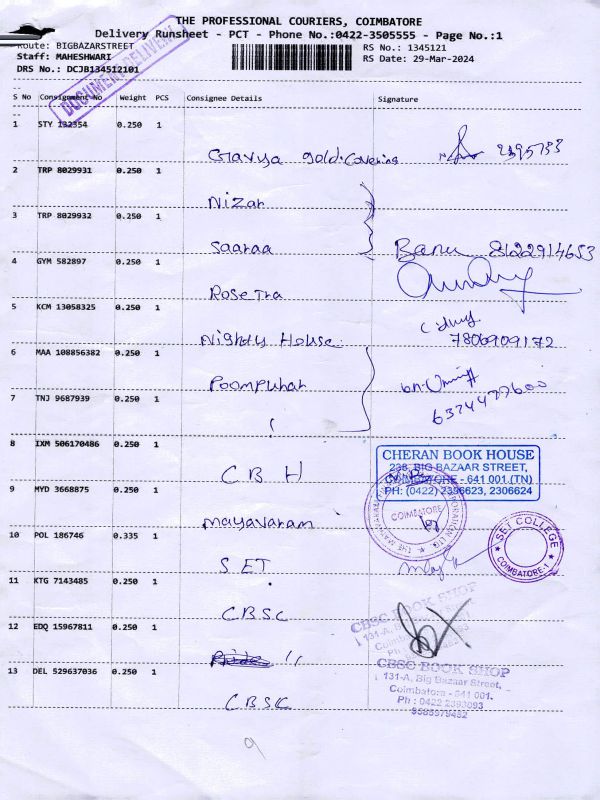 THE PROFESSIONAL COURIERS, COIMBATORE
Delivery Runsheet - PCT - Phone No.:0422-3505555 - Page No.:1
Route: BIGBAZARSTREET
RS No.: 1345121
Staff: MAHESHWARI
RS Date: 29-Mar-2024
DRS No.: DCJB134512101
DOCUMENT DELIVERY
S No Consignment No Weight PCS Consignee Details Signature
1 STY 132354 0.250 1
Gavya gold.Covering 2395733
2 TRP 8029931 0.250 1
Nizar
3 TRP 8029932 0.250 1
Saaraa Banu 8122914653
4 GYM 582897 0.250 1
Rose Tra
5 KCM 13058325 0.250 1
Nighty House 7806909172
6 MAA 108856382 0.250 1
Poompuhar
7 TNJ 9687939 0.250 1
6374477600
8 IXM 506170486 0.250 1
C B H
CHERAN BOOK HOUSE
238, BIG BAZAAR STREET,
COIMBATORE - 641 001.(TN)
PH: (0422) 2396623, 2306624
9 MYD 3668875 0.250 1
Mayavaram
COIMBATORE
10 POL 186746 0.335 1
S ET
SET COLLEGE
COIMBATORE-1
11 KTG 7143485 0.250 1
CBSC
CBSC BOOK SHOP
12 EDQ 15967811 0.250 1
"
13 DEL 529637036 0.250 1
CBSC
CBSC BOOK SHOP
131-A, Big Bazaar Street,
Coimbatore - 641 001.
Ph : 0422 2393093
9